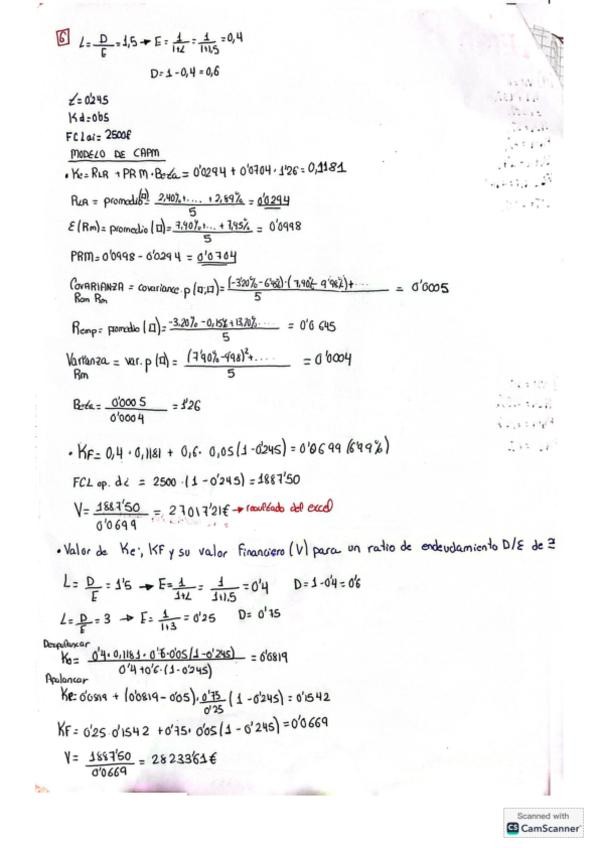 6 L = D/E = 1,5 → E = 1/1+L = 1/1+1,5 = 0,4
D = 1 - 0,4 = 0,6
t = 0'245
Kd = 0'05
FCLai = 2500€
MODELO DE CAPM
• Ke = RLR + PRM · Beta = 0'0294 + 0'0704 · 1'26 = 0,1181
RLR = promedio(□) 2,40%+.... + 2,89% / 5 = 0'0294
E(Rm) = promedio(□) = 7,90%+... + 7,95% / 5 = 0'0998
PRM = 0'0998 - 0'0294 = 0'0704
COVARIANZA = covariance p(□;□) = (-3'20% - 6'45)·(7,90% - 9'98%)+... / 5 = 0'0005
Rem Rm
Remp = promedio(□) = -3.20% - 0,15% + 13.70%... / 5 = 0'0645
Varianza = var. p(□) = (7'90% - 9'98)² + .... / 5 = 0'0004
Rm
Beta = 0'0005 / 0'0004 = 1'26
• KF = 0,4 · 0,1181 + 0,6 · 0,05(1 - 0'245) = 0'0699 (6'99%)
FCL op. dt = 2500 · (1 - 0'245) = 1887'50
V = 1887'50 / 0'0699 = 27017'21€ → resultado del excel
• Valor de Ke, KF y su valor Financiero (V) para un ratio de endeudamiento D/E de 3
L = D/E = 1'5 → E = 1/1+L = 1/1+1,5 = 0'4 D = 1 - 0'4 = 0'6
L = D/E = 3 → E = 1/1+3 = 0'25 D = 0'75
Desapalancar
Ko = 0'4 · 0,1181 · 0'6 · 0'05(1 - 0'245) / 0'4 + 0'6 · (1 - 0'245) = 0'0819
Apalancar
Ke = 0'0819 + (0'0819 - 0'05) · 0'75/0'25 (1 - 0'245) = 0'1542
KF = 0'25 · 0'1542 + 0'75 · 0'05(1 - 0'245) = 0'0669
V = 1887'50 / 0'0669 = 28233'61€
Scanned with
CS CamScanner